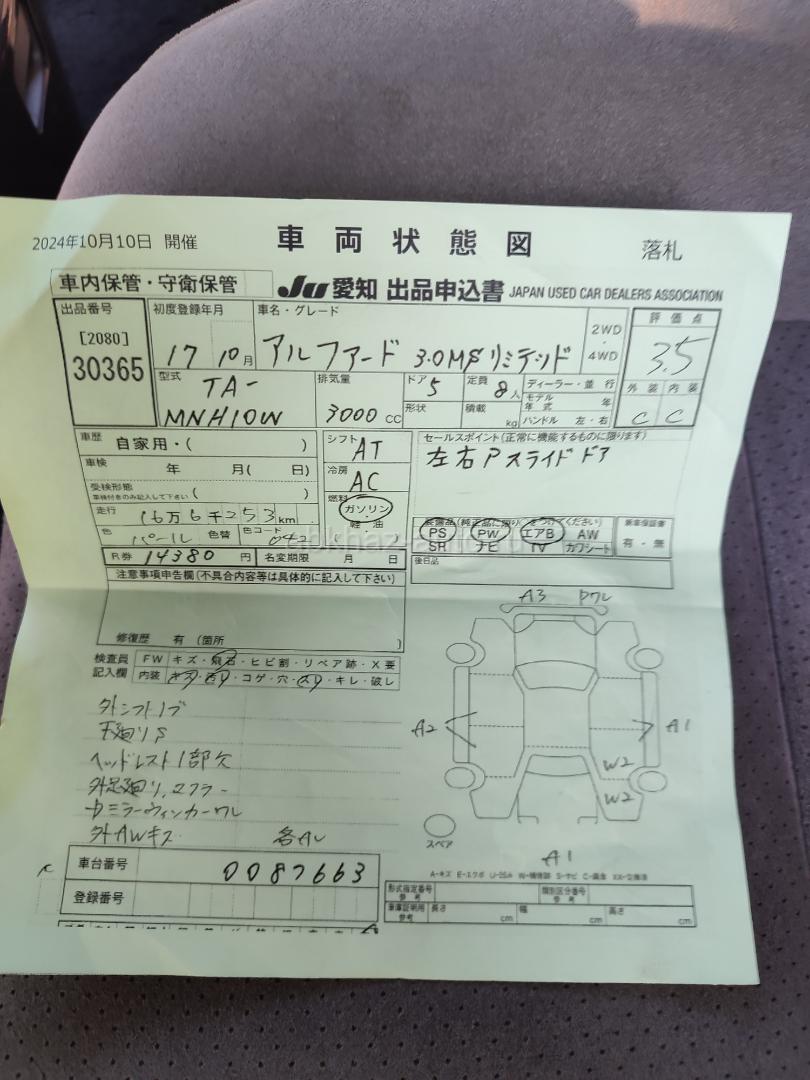 2024年10月10日 開催
車両状態図
落札
車内保管・守衛保管
JU 愛知 出品申込書 JAPAN USED CAR DEALERS ASSOCIATION
出品番号
[2080]
30365
初度登録年月
17 10月
車名・グレード
アルファード 3.0MSリミテッド
2WD
・
4WD
評価点
3.5
外装 内装
C C
型式
TA-
MNH10W
排気量
3000 CC
ドア 5
形状
定員 8人
積載 kg
ディーラー・並行
モデル年式 年
ハンドル 左・右
車歴 自家用・( )
車検 年 月( 日)
受検形態
車検付きのみ記入して下さい ( )
走行 16万6千253km
色 パール 色替 色コード 042
R券 14380 円 名変期限 月 日
シフト AT
冷房 AC
燃料
ガソリン・
軽油
セールスポイント(正常に機能するものに限ります)
左右Pスライドドア
装備品(純正品に限り○をつけてください)
PS PW エアB AW
SR ナビ TV カワシート
新車保証書
有・無
後日品
注意事項申告欄(不具合内容等は具体的に記入して下さい)
修復歴 有 (箇所 )
検査員
記入欄
FW キズ・飛石・ヒビ割・リペア跡・X要
内装 ・コゲ・穴・スリ・キレ・破し
外シフトノブ
下廻りS
ヘッドレスト1部欠
外足廻り、マフラー
ミラーウィンカーワレ
外AWキズ 各AL
A3 Pワレ
A2
A1
W2
W2
スペア
A1
A-キズ E-エクボ U-凹み W-補修跡 S-サビ C-腐食 XX-交換済
車台番号 0087663
登録番号
形式指定番号
参考
類別区分番号
参考
車庫証明用
参考
長さ cm 幅 cm 高さ cm